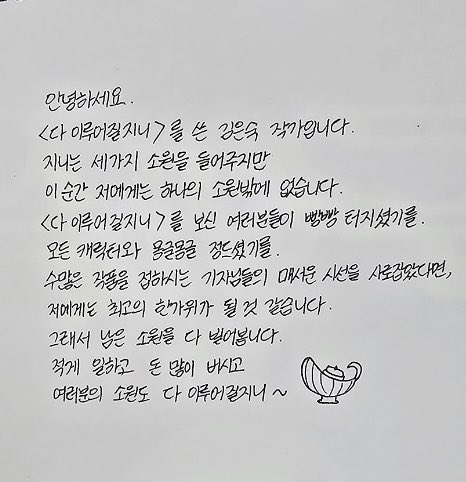 안녕하세요.
<다 이루어질지니>를 쓴 김은숙 작가입니다.
지니는 세가지 소원을 들어주지만
이 순간 저에게는 하나의 소원밖에 없습니다.
<다 이루어질지니>를 보신 여러분들이 빵빵 터지셨기를.
모든 캐릭터와 몽글몽글 정드셨기를.
수많은 작품을 접하시는 기자님들의 매서운 시선을 사로잡았다면,
저에게는 최고의 한가위가 될 것 같습니다.
그래서 남은 소원을 다 빌어봅니다.
적게 일하고 돈 많이 버시고
여러분의 소원도 다 이루어질지니~